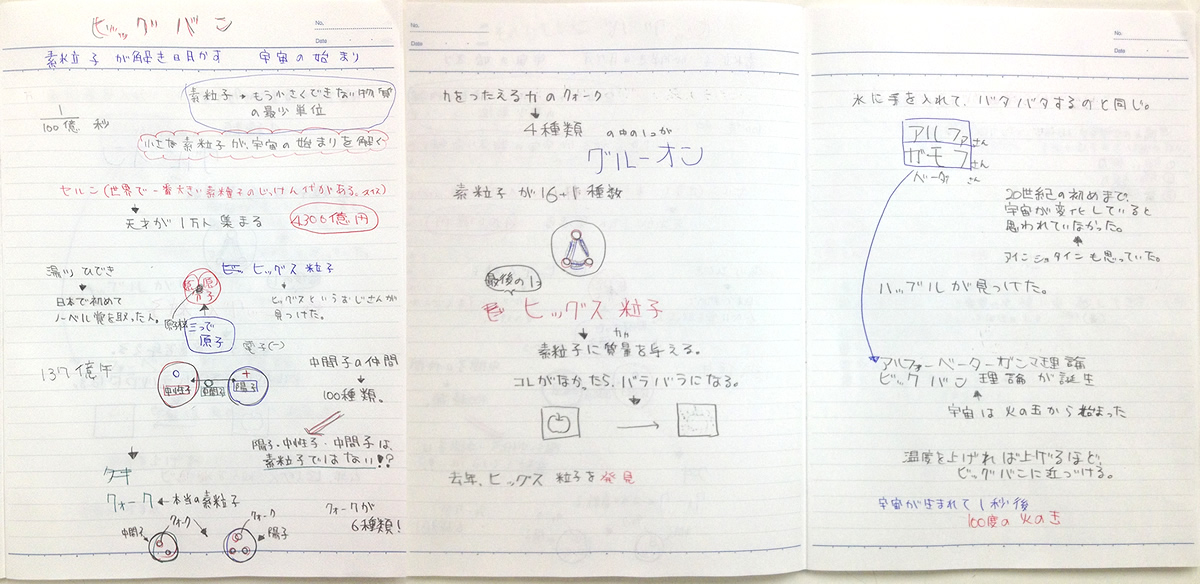 ビッグバン
No.
Date
素粒子が解き明かす 宇宙の始まり
素粒子→もう小さくできない物質
の最少単位
1
100億 秒
小さな素粒子が、宇宙の始まりを解く
セルン(世界で一番大きい素粒子のじっけん代がある。スイス)
天才が1万人集まる
4300億円
湯川ひでき
日本で初めて
ノーベル賞を取った人。
原子
原子核
三つで
原子
ヒッグス粒子
ヒッグスというおじさんが
見つけた。
電子(-)
137億年
0
中性子
中間子
+
陽子
中間子の仲間
100種類。
陽子・中性子・中間子は、
素粒子ではない!?
クォーク←本当の素粒子
中間子
クォーク
クォーク
陽子
クォークが
6種類!
No.
Date
力をつたえる力のクォーク
4種類 の中の1つが
グルーオン
素粒子が16+1種数
最後の1コ
ヒッグス粒子
素粒子に質量を与える。
コレがなかったら、バラバラになる。
去年、ヒッグス粒子を発見
No.
Date
水に手を入れて、バタバタするのと同じ。
アルファさん
ガモフさん
ベータさん
20世紀の初めまで、
宇宙が変化していると
思われていなかった。
アインシュタインも思っていた。
ハッブルが見つけた。
アルファーベーターガンマ理論
ビックバン理論が誕生
宇宙は火の玉から始まった
温度を上げれば上げるほど、
ビッグバンに近づける。
宇宙が生まれて1秒後
100度の火の玉